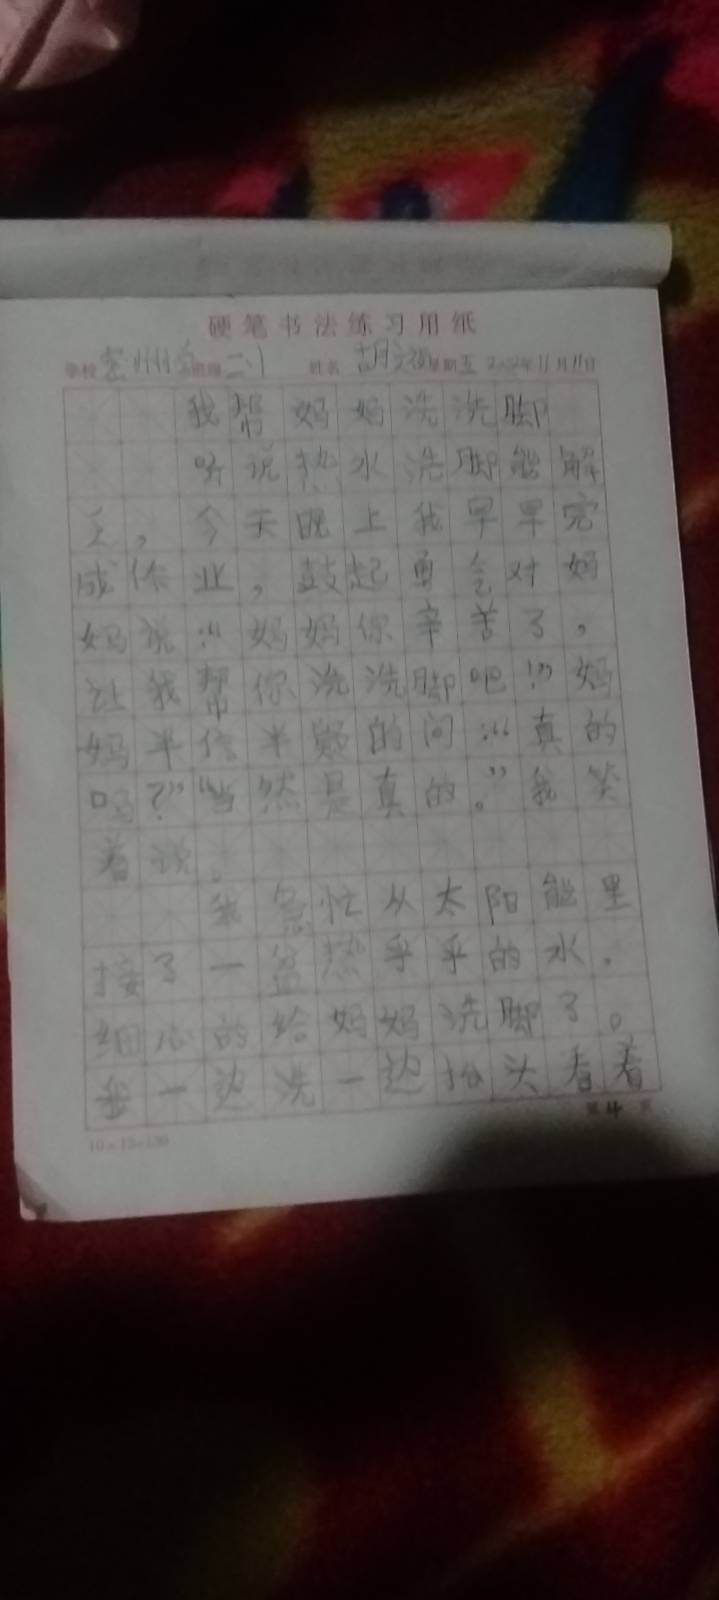 硬笔书法练习用纸
学校 密州 班级 二.1 姓名 胡 星期五 2022年11月11日
我帮妈妈洗洗脚
听说热水洗脚能解
乏，今天晚上我早早完
成作业，鼓起勇气对妈
妈说：“妈妈你辛苦了，
让我帮你洗洗脚吧！”妈
妈半信半疑的问：“真的
吗？”“当然是真的。”我笑
着说。
我急忙从太阳能里
接了一盆热乎乎的水，
细心的给妈妈洗脚了。
我一边洗一边抬头看着
第4页